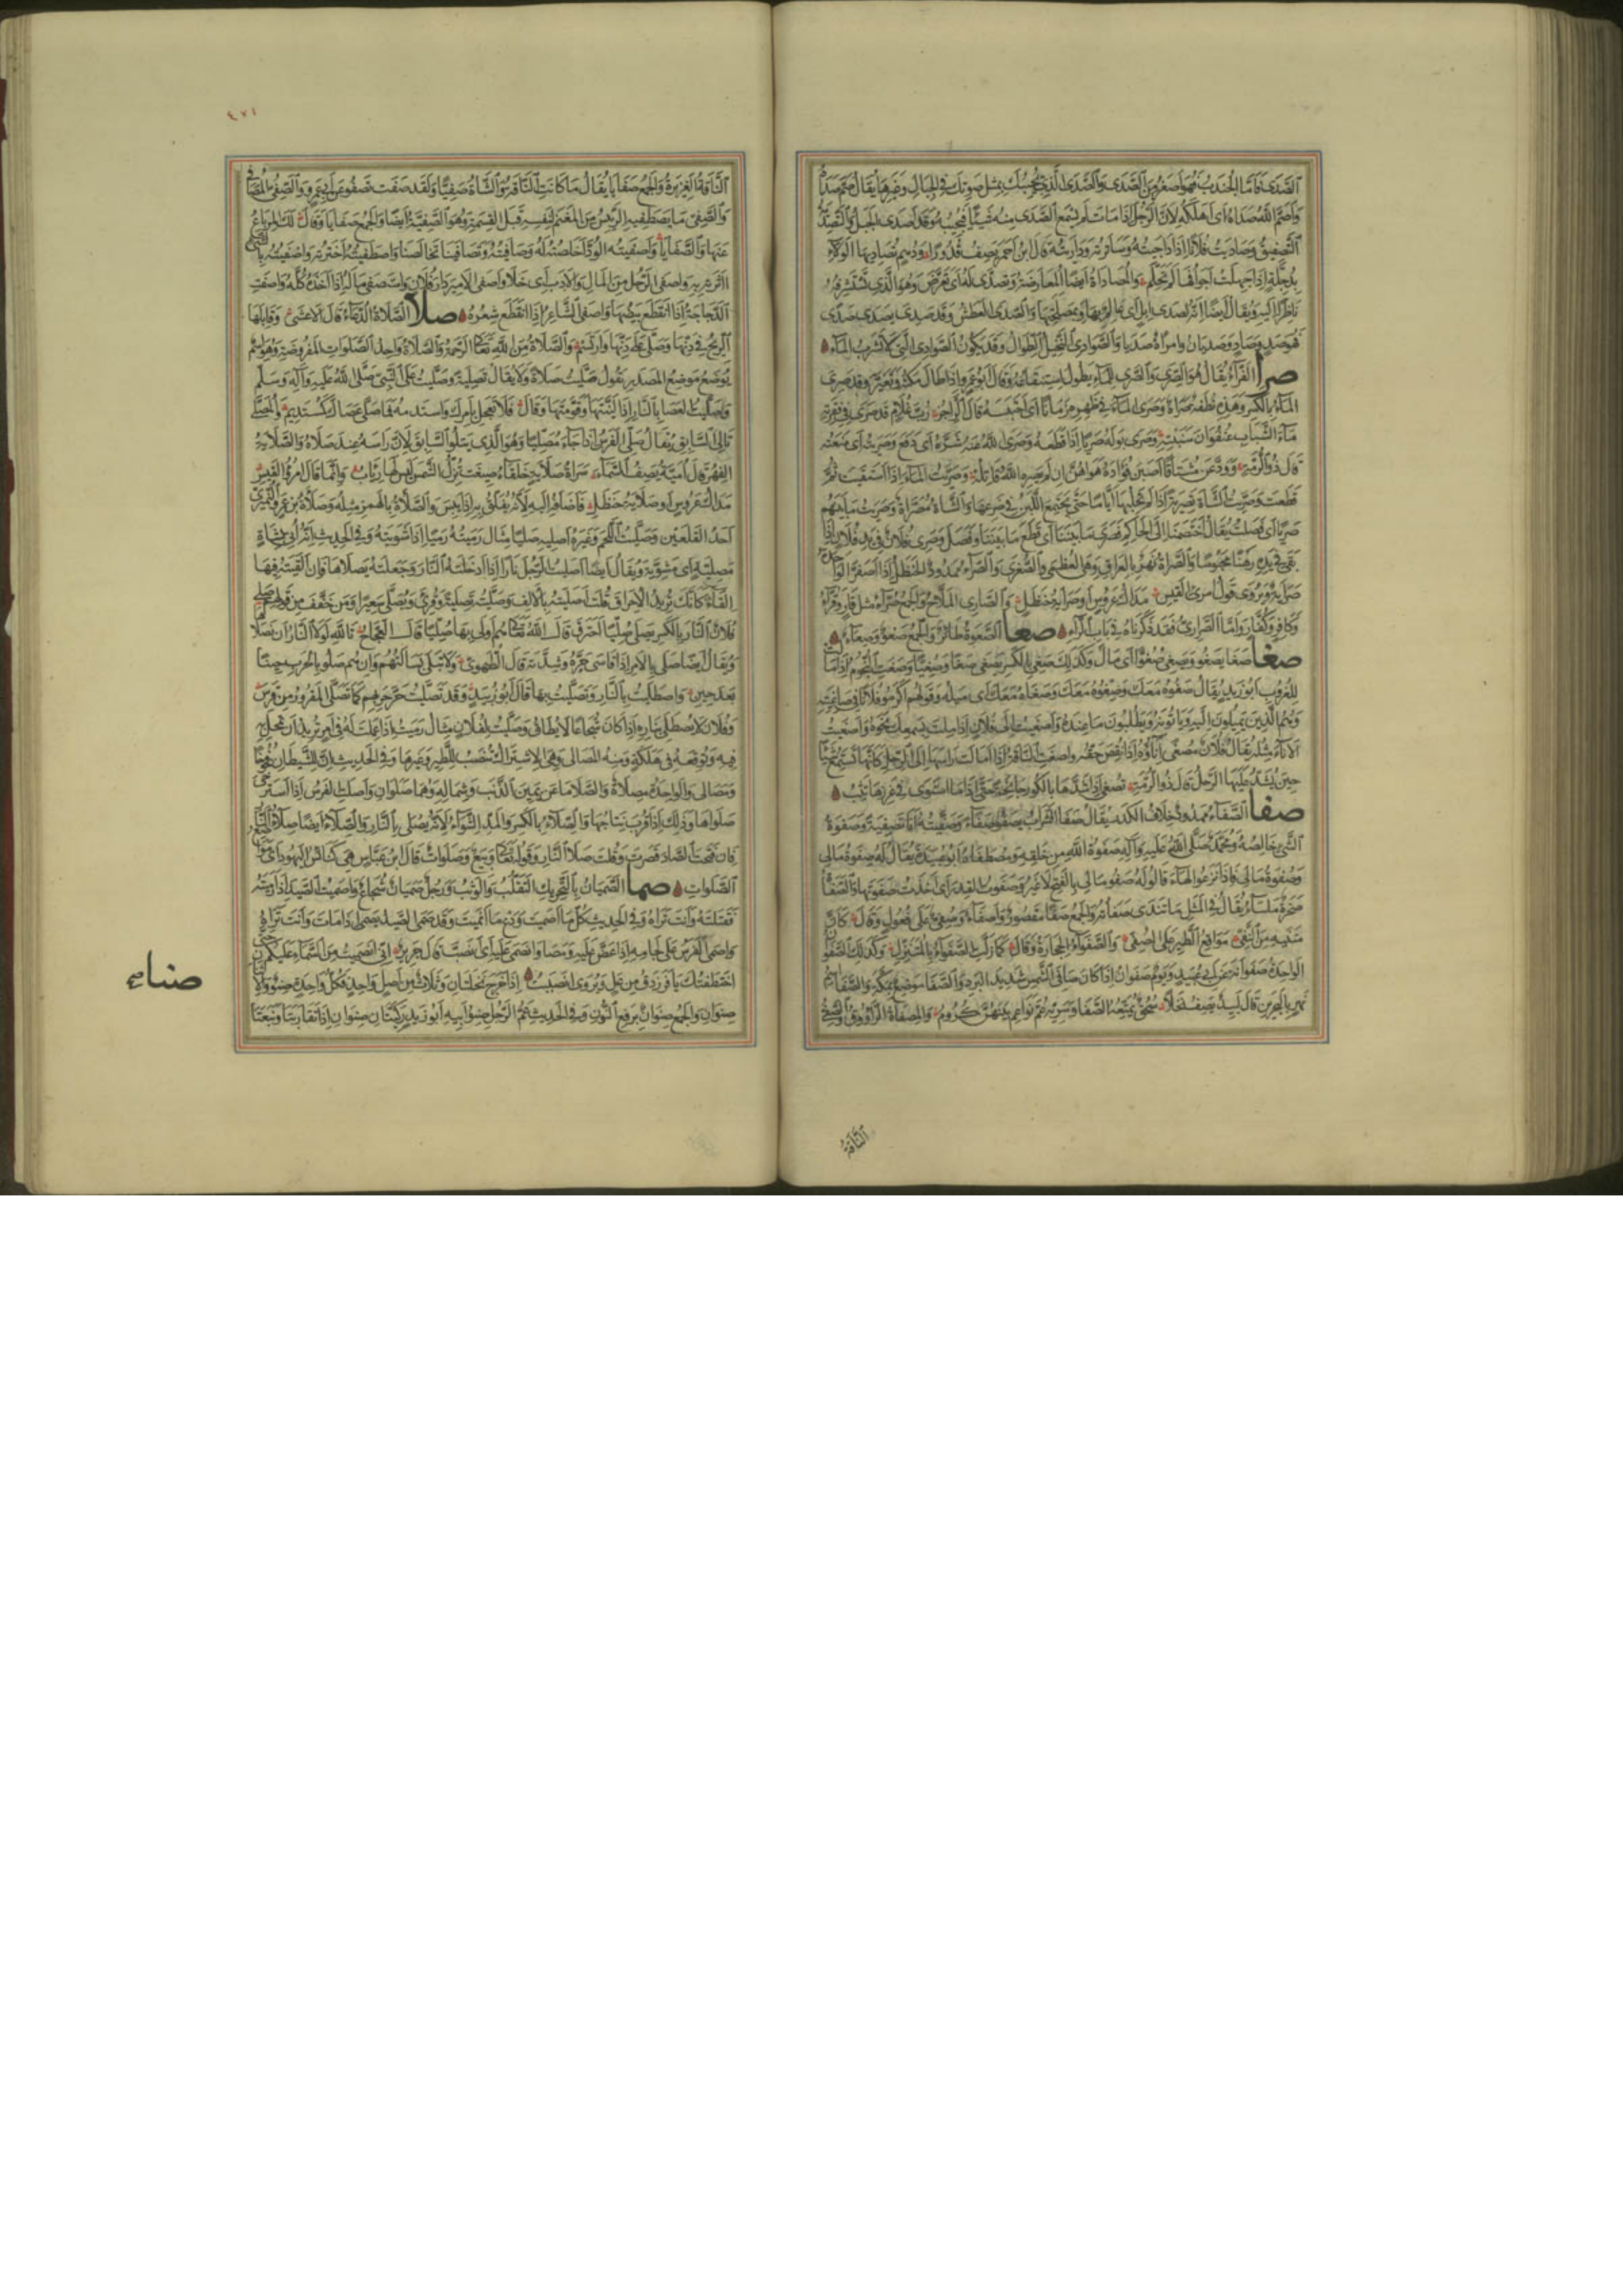 الصَّدى فامّا الجندب فهو اصغر من الصدى والصدى الذى يجيبك بمثل صوتك فى الجبال وغيرها يقال صمّ صداه
واصمّ الله صداه اى اهلكه لانّ الرجل اذا مات لم يسمع الصدى منه شيئا فيجيبه وقد اصدى الجبل والتصدية
التصفيق وصاديت فلانا اذا داجيته وساترته وداريته قال ابن احمر يصف قدورا ودهم تصاديها الولائد
جلّة اذا جهلت اجوافها لم تحلّم والمصاداة ايضا المعارضة وتصدّى له اى تعرّض وهو الذى تستشرفه
ناظرا اليه ويقال ايضا انّه لصدى ابل اى عالم بها وبمصلحتها والصدى العطش وقد صدى يصدى صدى
فهو صد وصاد وصديان وامراة صديا والصوادى النخيل الطوال وقد يكون الصوادى التى لا تشرب الماء
صرا الفرّاء يقال هو الصرى والصرى للماء يطول استنقاعه وقال ابو عمرو اذا طال مكثه وتغيّر وقد صرى
الماء بالكسر وهذه نطفة صراة وصرى الماء فى ظهره زمانا اى احتبسه قال الراجز ربّ غلام قد صرى فى فقرته
ماء الشباب عنفوان سنبته وصرى بوله صريا اذا قطعه وصرى الله عنه شرّه اى دفع وصريته اى منعته
قال ذو الرمّة وودّعن مشتاقا اصبن فؤاده هواهنّ ان لم يصره الله قاتله وصريت الماء اذا استقيت ثمّ
قطعت وصرّيت الشاة تصرية اذا لم تحلبها ايّاما حتّى يجتمع اللبن فى ضرعها والشاة مصرّاة وصريت ما بينهم
صريا اى فصلت يقال اختصمنا الى الحاكم فصرى ما بيننا اى قطع ما بيننا وفصل وصرى فلان فى يد فلان اذا
بقى فى يده رهنا محبوسا والصراة نهر بالعراق وهى العظمى والصغرى والصراء ممدود الحنظل اذا اصفرّ الواحدة
صراية ويروى قول امرئ القيس مداك عروس او صراية حنظل والصارى الملّاح والجمع صرّاء مثل قارٍ وقرّاء
وكافر وكفّار وامّا الصرارى فقد ذكرناه فى باب الراء صعا الصعوة طائر والجمع صعو وصعاء
صغا صغا يصغو ويصغى صغوّا اى مال وكذلك صغى بالكسر يصغى صغا وصغيّا وصغت النجوم اذا مالت
للغروب ابو زيد يقال صغوه معك وصغوه معك وصغاه معك اى ميله وقولهم اكرموا فلانا فى صاغيته
وهم الذين يميلون اليه وياتونه ويطلبون ما عنده واصغيت الى فلان اذا ملت بسمعك نحوه واصغيت
الاناء مثله يقال فلان مصغى اناؤه اذا نقص حقّه واصغت الناقة اذا امالت راسها الى الرحل كانّها تستمع شيئا
حين يشدّ عليها الرحل قال ذو الرمّة تصغى اذا شدّها بالكور جانحة حتّى اذا ما استوى فى غرزها تثب
صفا الصفاء ممدود خلاف الكدر يقال صفا الشراب يصفو صفاء وصفّيته انا تصفية وصفوة
الشىء خالصه ومحمّد صلّى الله عليه وآله صفوة الله من خلقه ومصطفاه ابو عبيدة يقال له صفوة مالى
وصفوة مالى فاذا نزعوا الهاء قالوا له صفو مالى بالفتح لا غير
صخرة ملساء يقال فى المثل ما تندى صفاته والجمع صفا مقصور واصفاء وصفىّ على فعول وقال كانّ
متنيه من النفى مواقع الطير على الصفىّ والصفواء الحجارة وقال كما زلّت الصفواء بالمتنزّل وكذلك الصفوان
الواحدة صفوانة عن ابى عبيد ويوم صفوان اذا كان صافى الشمس شديد البرد والصفا موضع بمكّة والصفا اسم
نهر بالبحرين قال لبيد يصف نخلا سحق يمتّعها الصفا وسريّه عمّ نواعم بينهنّ كروم والمصفاة الراووق والصفىّ
الناقة
٤٧١
الناقة الغزيرة والجمع صفايا يقال ما كانت الناقة والشاة صفيّا ولقد صفت تصفو عن ابى عمرو والصفىّ المصافى
والصفىّ ما يصطفيه الرئيس من المغنم لنفسه قبل القسمة وهو الصفيّة ايضا والجمع صفايا وقال لك المرباع
منها والصفايا واصفيته الودّ اخلصته له وصافيته وتصافينا تخالصنا واصطفيته اخترته واصفيته بالشىء
اثرته به واصفى الرجل من المال والادب اى خلا واصفى الامير دار فلان واستصفى ماله اذا اخذه كلّه واصفت
الدجاجة اذا انقطع بيضها واصفى الشاعر اذا انقطع شعره صلا الصلاة الدعاء قال الاعشى وقابلها
الريح فى دنّها وصلّى على دنّها وارتسم والصلاة من الله تعالى الرحمة والصلاة واحد الصلوات المفروضة وهو اسم
يوضع موضع المصدر تقول صلّيت صلاة ولا يقال تصلية وصلّيت على النبىّ صلّى الله عليه وآله وسلّم
وصلّيت العصا بالنار اذا ليّنتها وقوّمتها وقال فلا تعجل بامرك واستدمه فما صلّى عصاك كمستديم والمصلّى
تالى السابق يقال صلّى الفرس اذا جاء مصلّيا وهو الذى يتلو السابق لانّ راسه عند صلاه والصلاية
الفهر قال اميّة يصف السماء سراة صلاية خلقاء صيغت تزلّ الشمس ليس لها رياب وانّما قال امرؤ القيس
مداك عروس او صلاية حنظل فاضافه اليه لانّه يفلّق به اذا يبس والصلاءة بالهمز مثله وصلاءة بن عمرو النميرى
احد القلعين وصليت اللحم وغيره اصليه صليا مثال رميته رميا اذا شويته وفى الحديث انّه اتى بشاة
مصليّة اى مشويّة ويقال ايضا صليت الرجل نارا اذا ادخلته النار وجعلته يصلاها فان القيته فيها
القاء كانّك تريد الاحراق قلت اصليته بالالف وصلّيته تصلية وقرئ ويصلّى سعيرا ومن خفّف فهو من قولهم صلى
فلان النار بالكسر يصلى صليّا احترق قال الله تعالى هم اولى بها صليّا قال العجّاج تالله لولا النار ان نصلاها
ويقال ايضا صلى بالامر اذا قاسى حرّه وشدّته قال الطهوى ولا تبلى بسالتهم وان هم صلوا بالحرب حينا
بعد حين واصطليت بالنار وتصلّيت بها قال ابو زبيد وقد تصلّيت حرّ حربهم كما تصلّى المقرور من قرس
وفلان لا يصطلى بناره اذا كان شجاعا لا يطاق وصليت لفلان مثال رميت اذا عملت له فى امر تريد ان تمحل به
فيه وتوقعه فى هلكة ومنه المصالى وهى الاشراك تنصب للطير وغيرها وفى الحديث انّ للشيطان فخوخا
ومصالى والواحدة مصلاة والصلا ما عن يمين الذنب وشماله وهما صلوان واصلت الفرس اذا استرخى
صلواها وذلك اذا قرب نتاجها والصلاء بالكسر والمدّ الشواء لانّه يصلى بالنار والصلاء ايضا صلاء النار
فان فتحت الصاد قصرت وقلت صلا النار وقوله تعالى وبيع وصلوات قال ابن عبّاس هى كنائس اليهود اى مواضع
الصلوات صما الصميان بالتحريك التقلّب والوثب ورجل صميان شجاع واصميت الصيد اذا رميته
فقتلته وانت تراه وفى الحديث كل ما اصميت ودع ما انميت وقد صمى الصيد يصمى اذا مات وانت تراه
واصمى الفرس على لجامه اذا عضّ عليه ومضى وانصمى عليه اى انصبّ قال جرير انّى انصميت من السماء عليكم حتّى
اختطفتك يا فرزدق من عل ويروى انصببت اذا خرج نخلتان وثلاث من اصل واحد فكلّ واحدة صنو والاثنان
صنوان والجمع صنوان برفع النون وفى الحديث عمّ الرجل صنو ابيه ابو زيد ركيّتان صنوان اذا تقاربتا ونبعتا
صناء